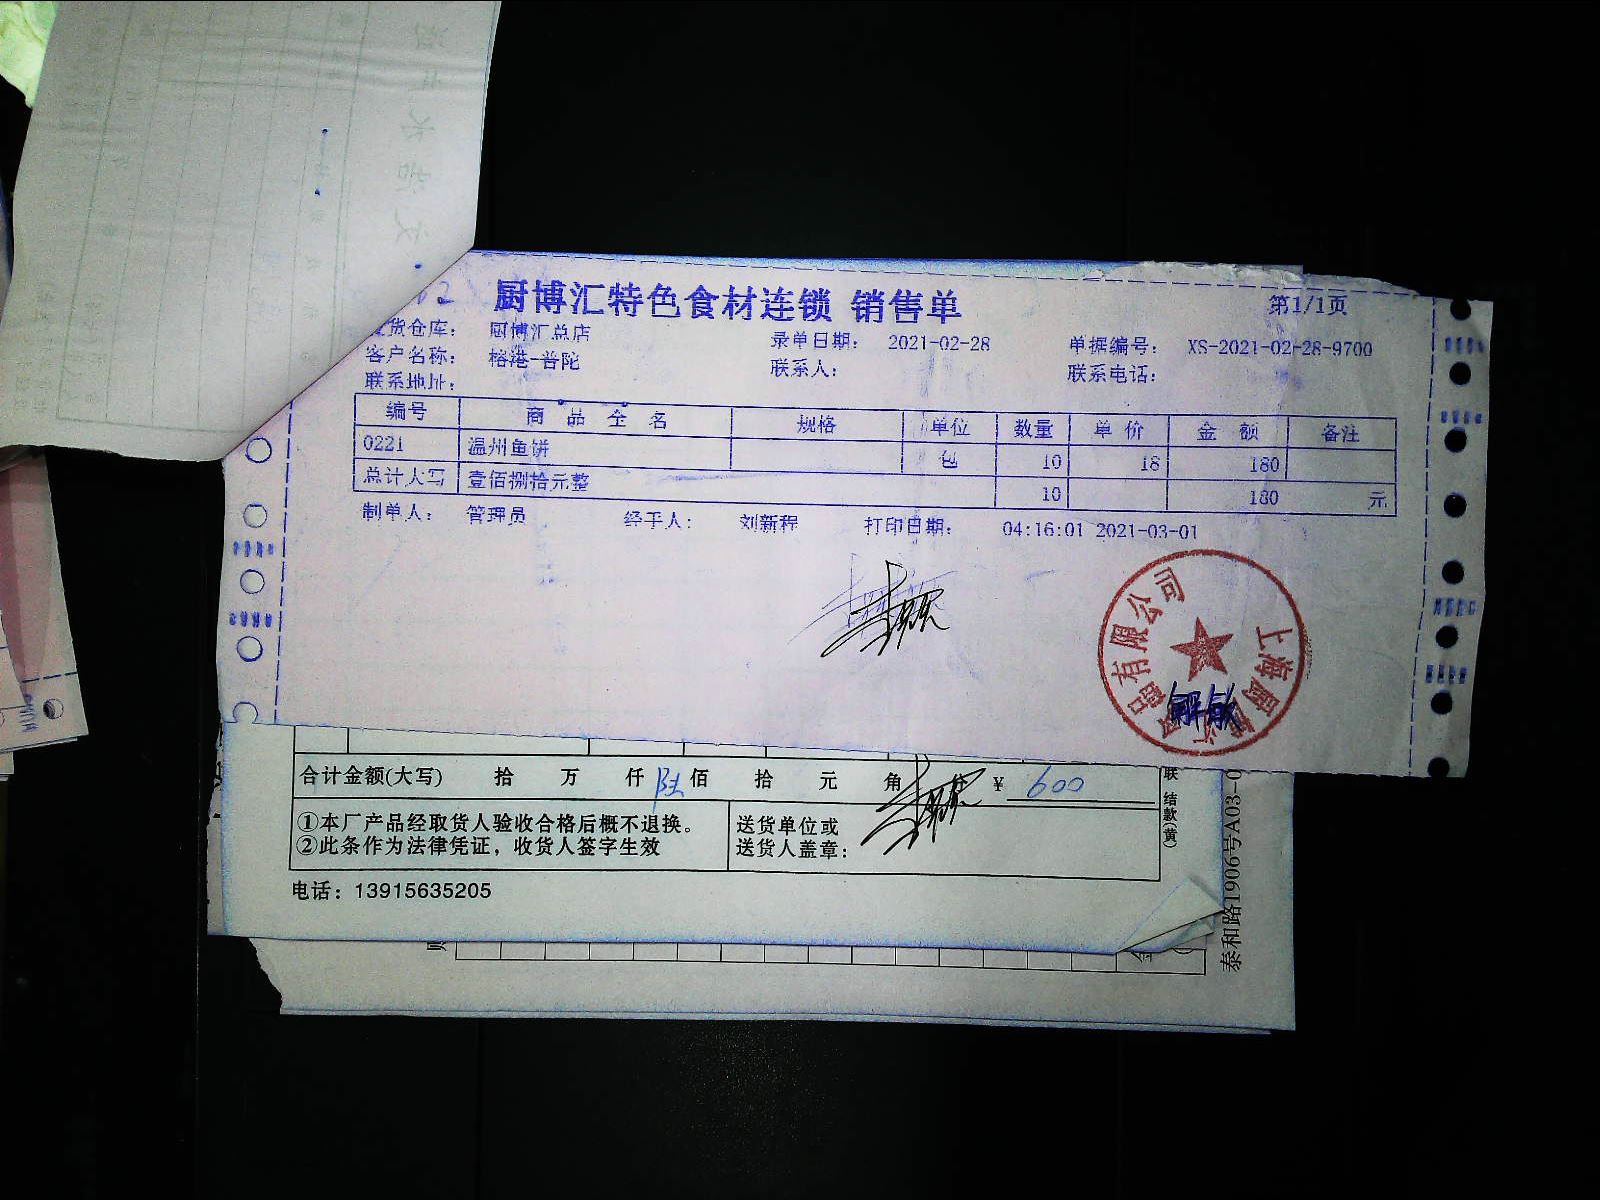 厨博汇特色食材连锁 销售单 第1/1页
货仓库： 厨博汇总店 录单日期： 2021-02-28 单据编号： XS-2021-02-28-9700
客户名称： 榕港-普陀 联系人： 联系电话：
联系地址：
编号 商品全名 规格 单位 数量 单价 金额 备注
0221 温州鱼饼 包 10 18 180
总计大写 壹佰捌拾元整 10 180 元
制单人： 管理员 经手人： 刘新程 打印日期： 04:16:01 2021-03-01
上海厨博汇 品有限公司
合计金额(大写) 拾 万 仟 陆 佰 拾 元 角 分 ¥ 600
①本厂产品经取货人验收合格后概不退换。
②此条作为法律凭证，收货人签字生效
送货单位或
送货人盖章：
电话：13915635205
联 结款(黄)
泰和路1906号A03-0